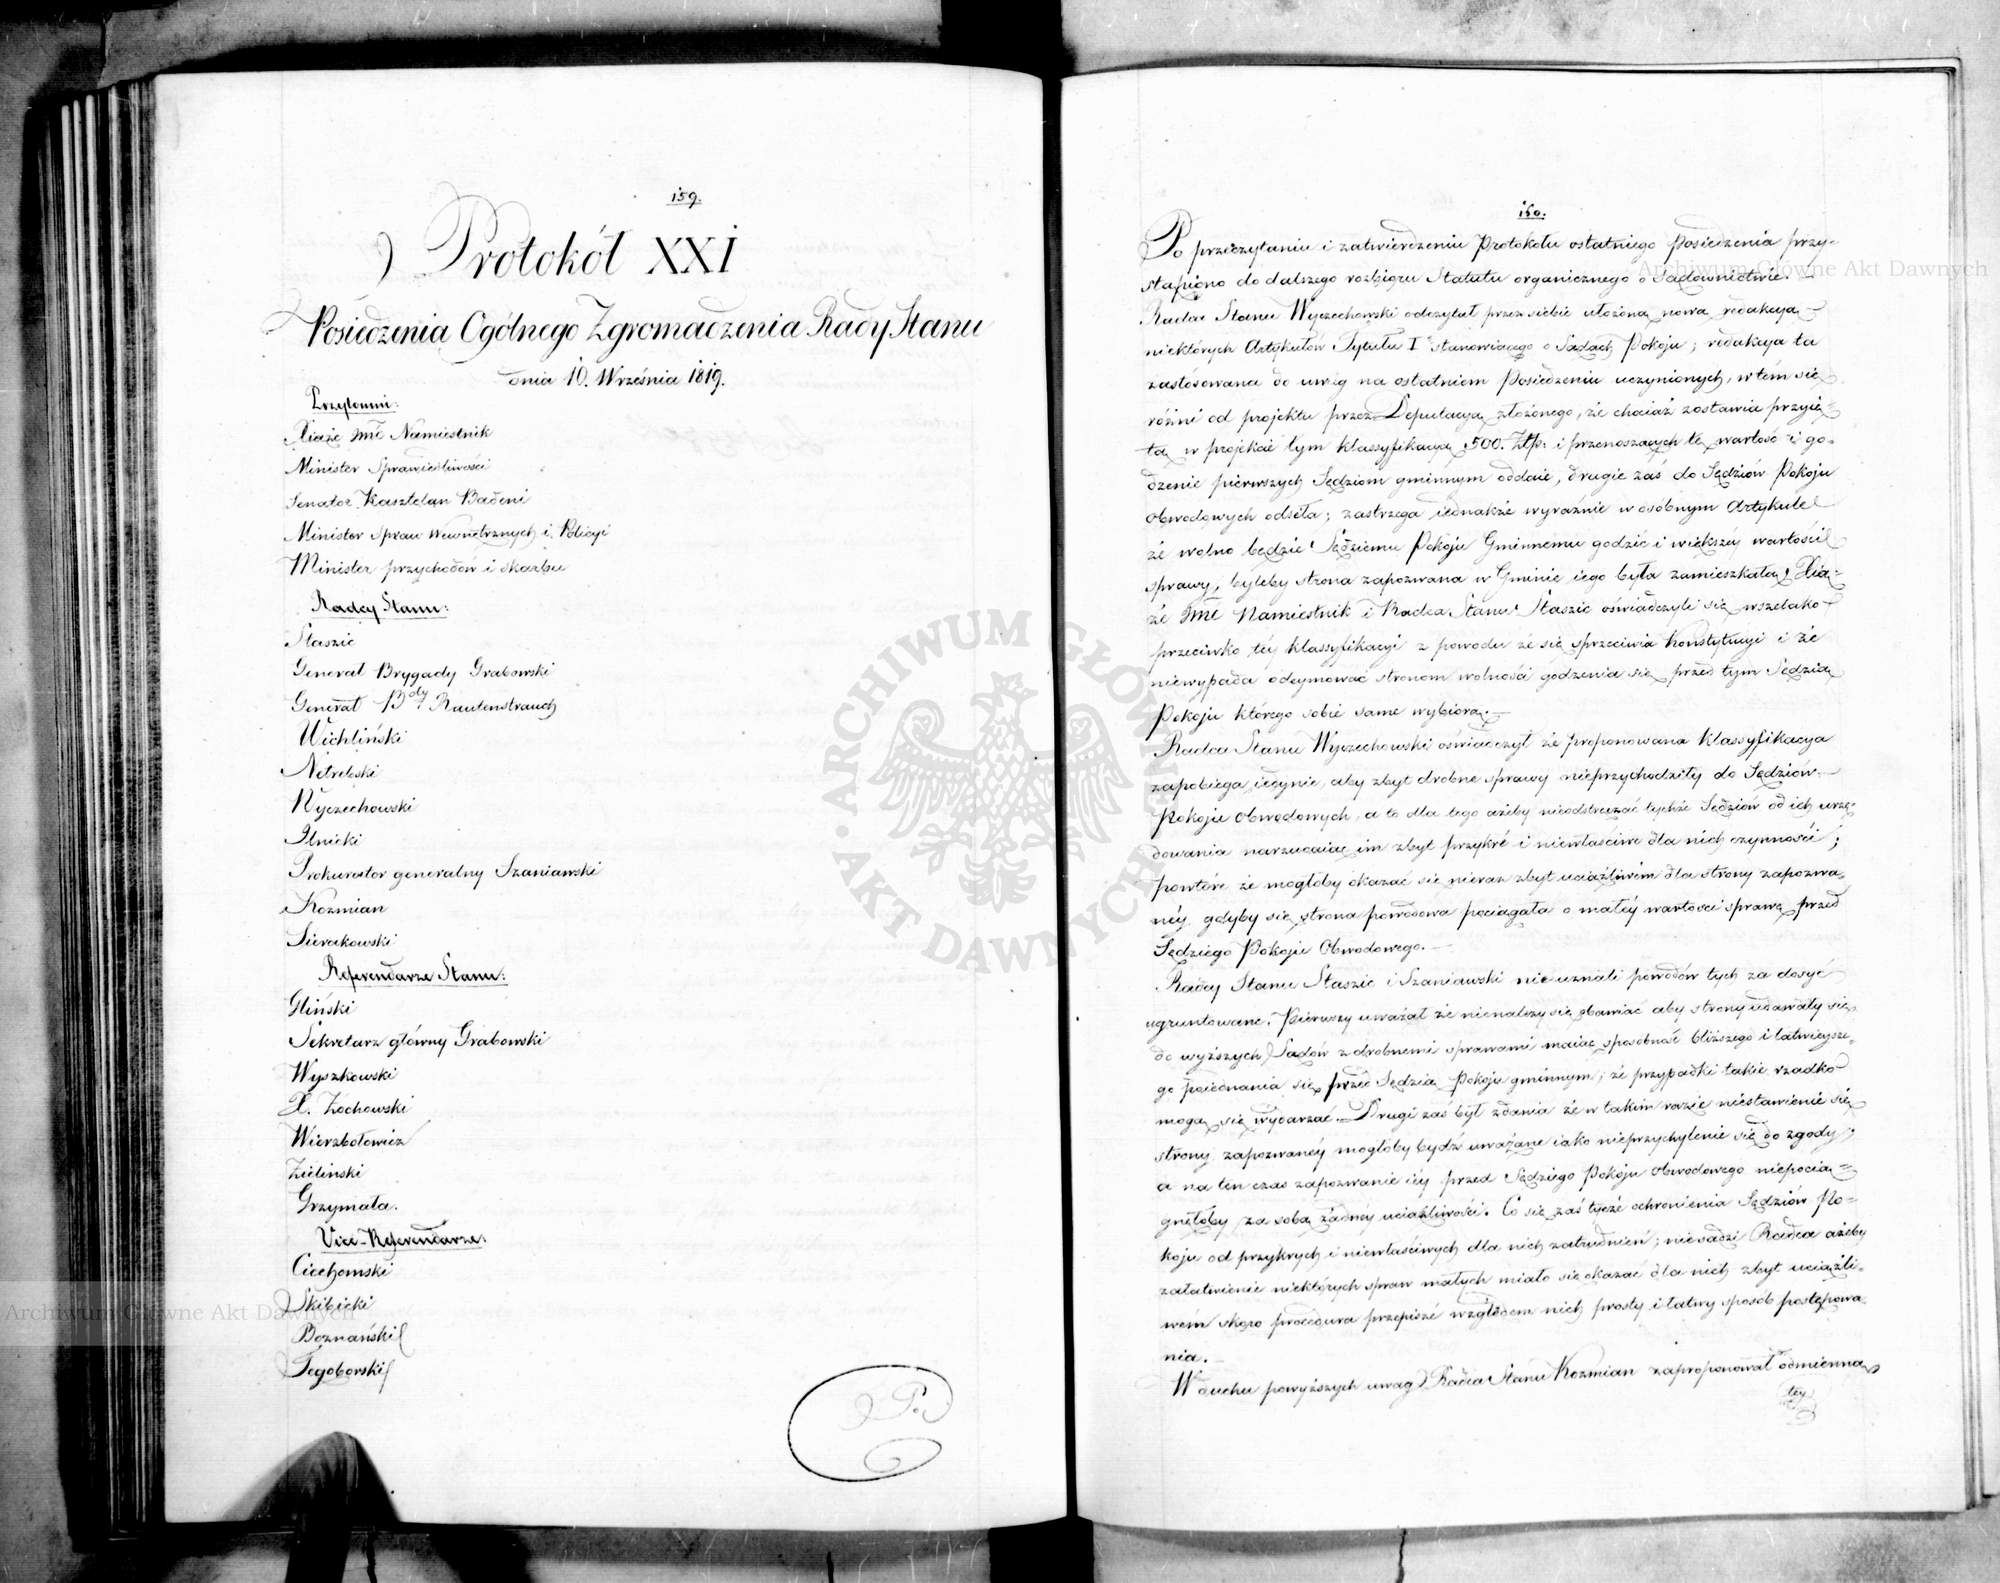 159.
Protokół XXI
Posiedzenia Ogólnego Zgromadzenia Rady Stanu
dnia 10. Września 1819.
Przytomni:
Xiąże Jmć Namiestnik
Minister Sprawiedliwości
Senator Kasztelan Badeni
Minister Spraw Wewnętrznych i Policyi
Minister przychodów i skarbu
Radcy Stanu:
Staszic
Generał Brygady Grabowski
Generał Bdy Rautenstrauch
Wichliński
Netrebski
Wyczechowski
Ilnicki
Prokurator generalny Szaniawski
Kozmian
Sierakowski
Referendarze Stanu:
Gliński
Sekretarz główny Grabowski
Wyszkowski
X. Żochowski
Wierzbołowicz
Zieliński
Grzymała.
Vice-Referendarze:
Ciechomski
Skibicki
Boznański
Tęgoborski
Po.
160.
Po przeczytaniu i zatwierdzeniu Protokołu ostatniego Posiedzenia przy-
stąpiono do dalszego rozbioru Statutu organicznego o Sądownictwie. —
Radca Stanu Wyczechowski odczytał przez siebie ułożoną nową redakcyą
niektórych Artykułów Tytułu I° stanowiącego o Sądach Pokoju; redakcya ta
zastosowana do uwag na ostatniem Posiedzeniu uczynionych, w tem się
różni od projektu przez Deputacyą złożonego, że chociaż zostawia przyię-
tą w projekcie tym klassyfikacyą 500. Złp. i przenoszących tę wartość i go-
dzenie pierwszych Sędziom gminnym oddaie, drugie zaś do Sędziów Pokoju
Obwodowych odseła; zastrzega iednakże wyraźnie w osóbnym Artykule
że wolno będzie Sędziemu Pokoju Gminnemu godzić i większey wartości
sprawy, byleby strona zapozwana w Gminie iego była zamieszkałą. Xią-
że Jmć Namiestnik i Radca Stanu Staszic oświadczyli się wszelako
przeciwko téy klassyfikacyi z powodu że się sprzeciwia Konstytucyi i że
niewypada odeymować stronom wolności godzenia się przed tym Sędzią
Pokoju którego sobie same wybiorą. —
Radca Stanu Wyczechowski oświadczył że proponowana klassyfikacya
zapobiega iedynie, aby zbyt drobne sprawy nieprzychodziły do Sędziów
Pokoju Obwodowych, a to dla tego ażeby nieodstręczać tychże Sędziów od ich urzę-
dowania narzucaiąc im zbyt przykré i niewłaściwe dla nich czynności;
powtóre że mogłoby okazać się nieraz zbyt uciążliwém dla strony zapozwa-
néy gdyby się strona powodowa pociągała o małéy wartości sprawę przed
Sędziego Pokoju Obwodowego. —
Radcy Stanu Staszic i Szaniawski nie uznali powodów tych za dosyć
ugruntowane. Pierwszy uważał że nienależy się obawiać aby strony udawały się
do wyższych Sądów z drobnemi sprawami maiąc sposobność bliższego i łatwieysze-
go poiednania się przed Sędzią Pokoju gminnym; że przypadki takie rzadko
mogą się wydarzać. Drugi zaś był zdania że w takim razie niestawienie się
strony zapozwanéy mogłoby bydź uważane iako nieprzychylenie się do zgody;
a na ten czas zapozwanie iéy przed Sędziego Pokoju Obwodowego niepocią-
gnęłoby za sobą żadnéy uciążliwości. Co się zaś tycze ochronienia Sędziów Po-
koju od przykrych i niewłaściwych dla nich zatrudnień; niesądzi Radca ażeby
załatwienie niektórych spraw małych miało się okazać dla nich zbyt uciążli-
wém skoro procedura przepisze względem nich prosty i łatwy sposób postępowa-
nia. —
W duchu powyższych uwag Radca Stanu Kozmian zaproponował odmienną
téy
Archiwum Główne Akt Dawnych
Archiwum Główne Akt Dawnych
ARCHIWUM GŁÓWNE AKT DAWNYCH